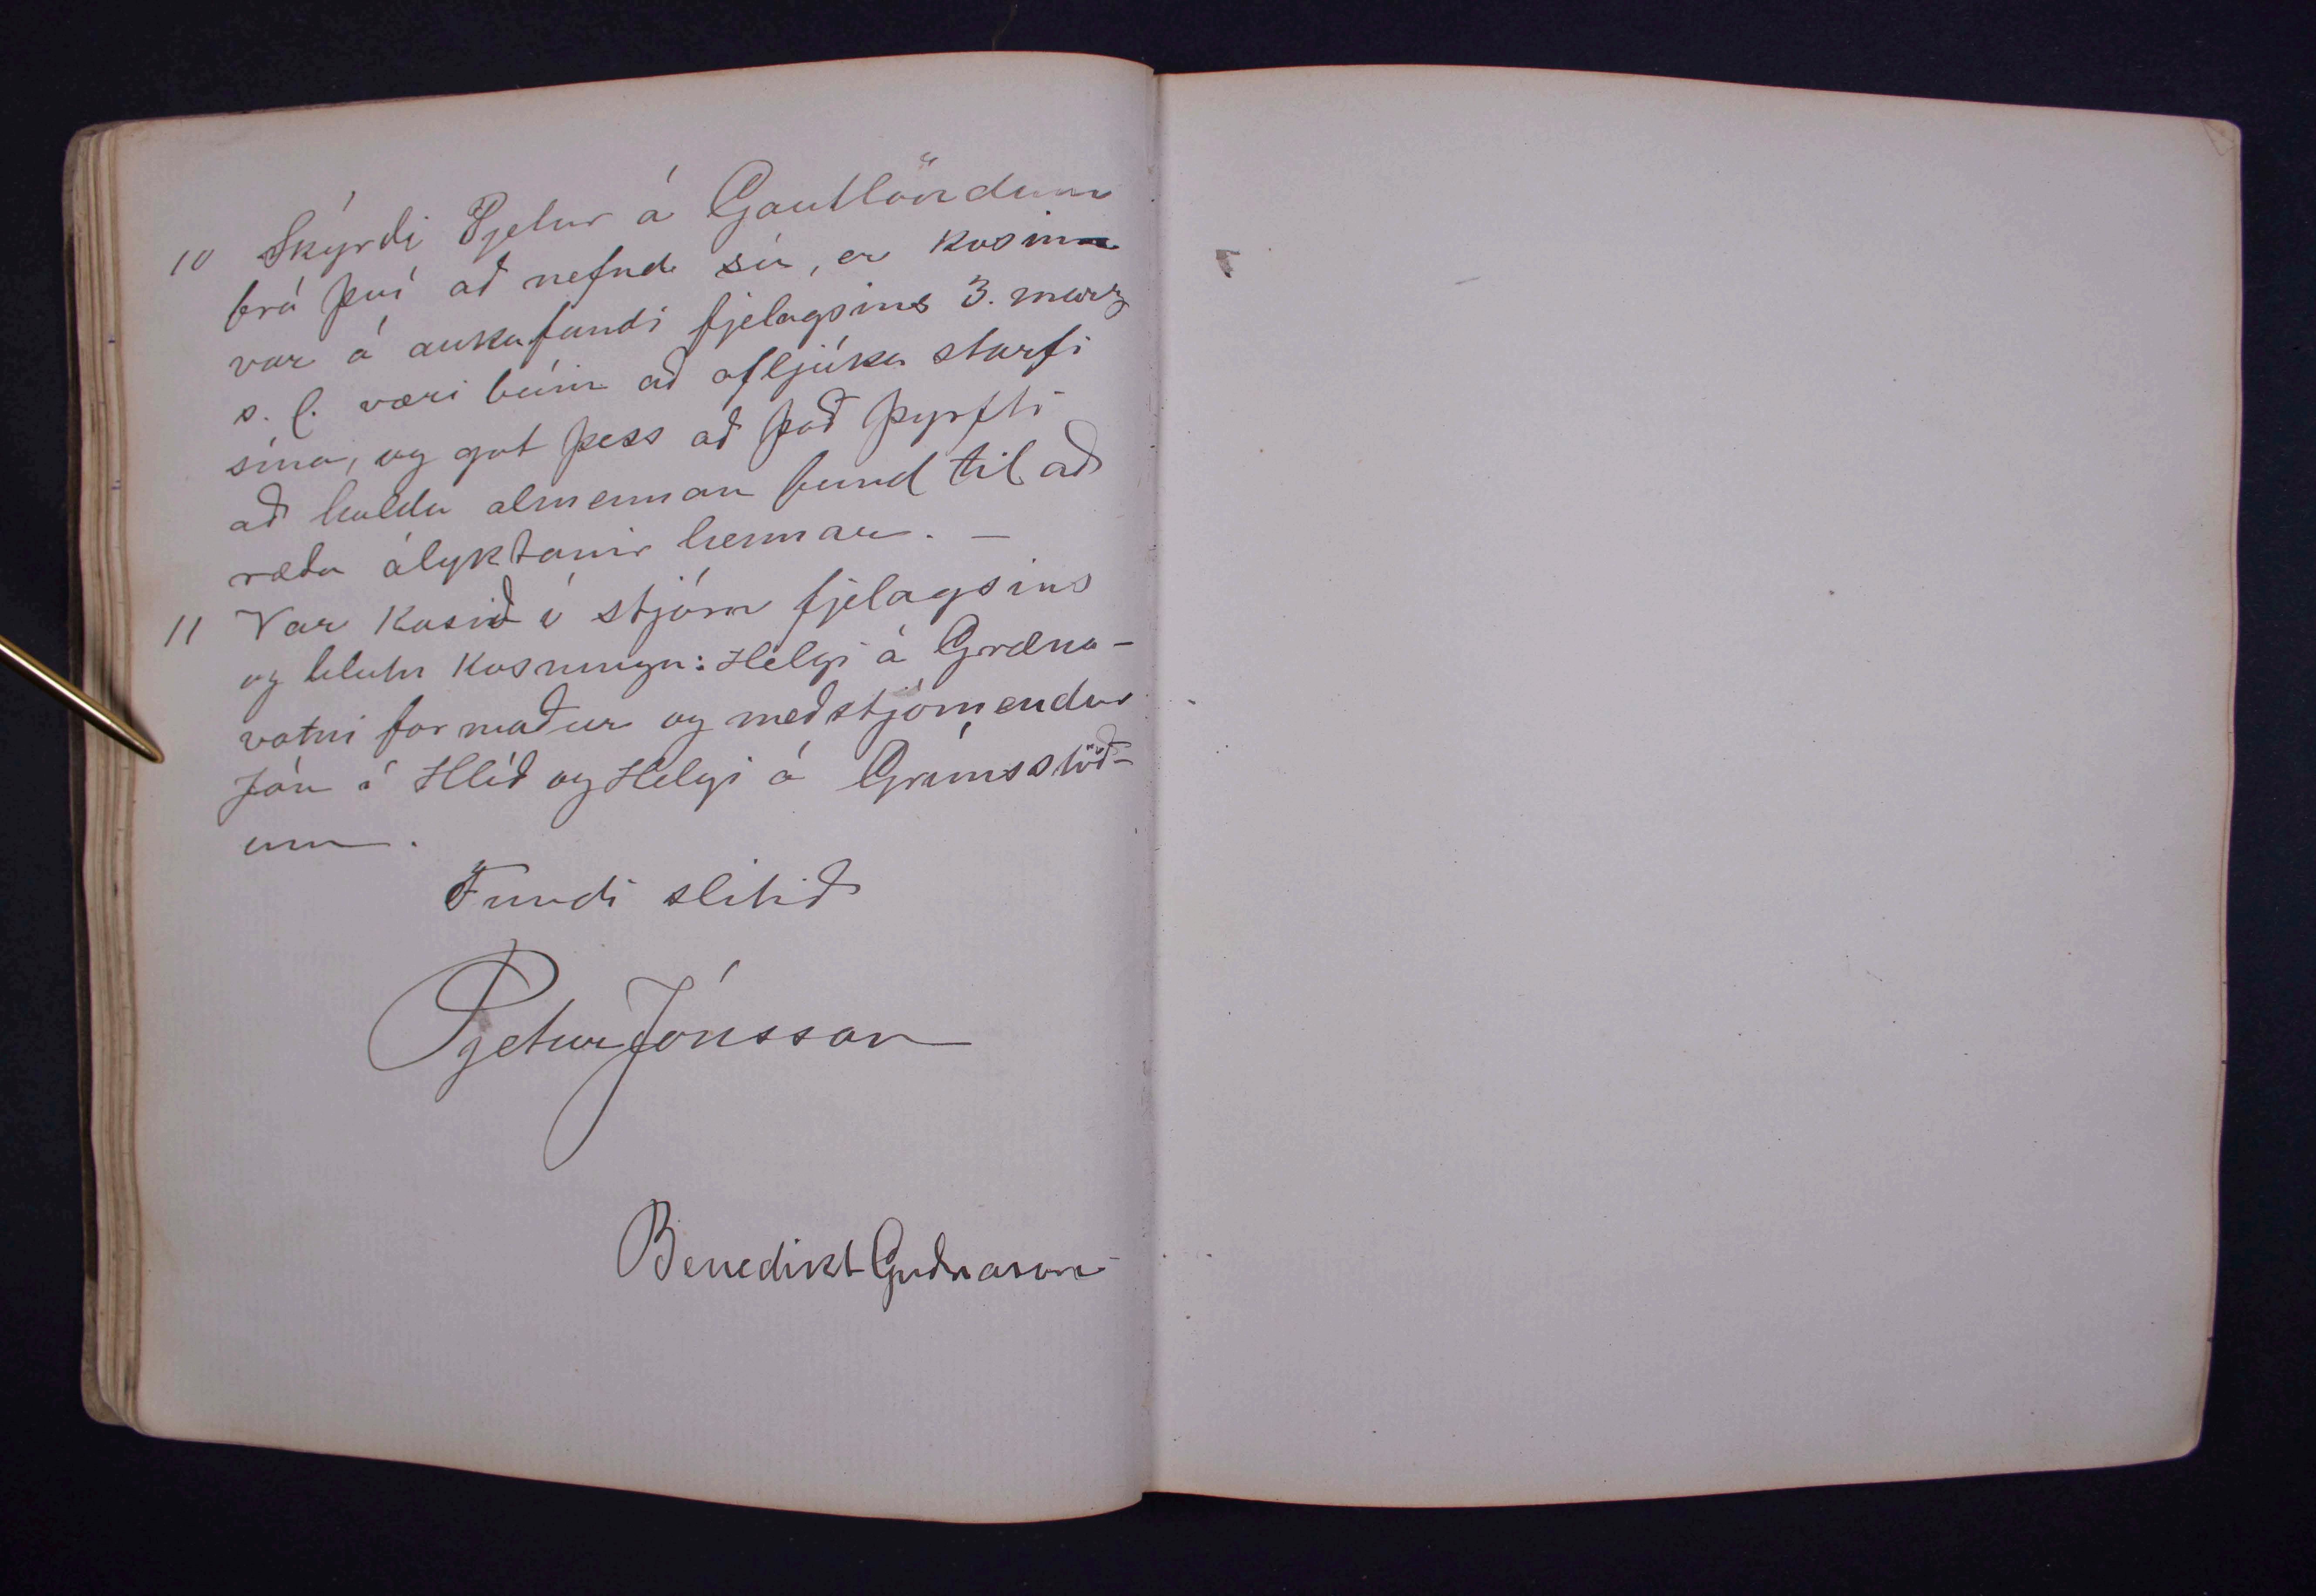 10 Skýrdi Pjetur á Gautlöndum
frá því að nefnd sú, er kosin
var á aukafundi fjelagsins 3. marz
s. l. væri búin að afljúka starfi
sína, og gat þess að það þyrfti
að halda almennan fund til að
ræða ályktanir hennar. —
11 Var kosið í stjórn fjelagsins
og hlutu kosningu: Helgi á Græna-
vatni formaður og meðstjórnendur
Jón í Hlíð og Helgi á Grímsstöð-
um.
Fundi slitið
Pjetur Jónsson
Benedikt Guðnason